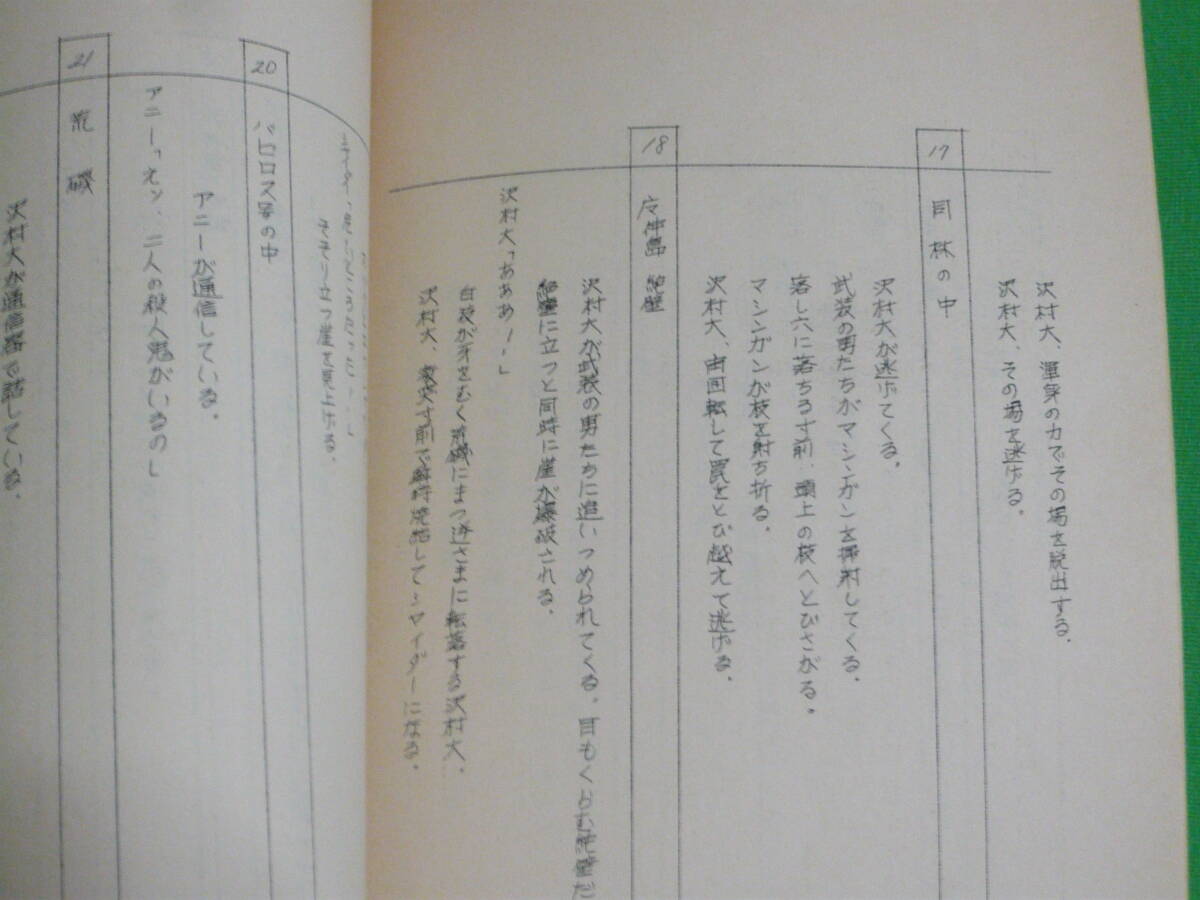 沢村大、渾身の力でその場を脱出する。
沢村大、その場を逃げる。
17 同 林の中
沢村大が逃げてくる。
武装の男たちがマシンガンを掃射してくる。
落し穴に落ちる寸前、頭上の枝へとびさがる。
マシンガンが枝を射ち折る。
沢村大、宙回転して罠をとび越えて逃げる。
18 絶壁
沢村大が武装の男たちに追いつめられてくる。目もくらむ絶壁だ
絶壁に立つと同時に崖が爆破される。
沢村大「あああ！」
白波が牙をむく荒磯にまっ逆さまに転落する沢村大。
沢村大、激突寸前で瞬時焼結してシャイダーになる。
シャイダー「
そそり立つ崖を見上げる。
20 バビロス号の中
アニーが通信している。
アニー「えッ、二人の殺人鬼がいるの」
21 荒磯
沢村大が通信器で話している。